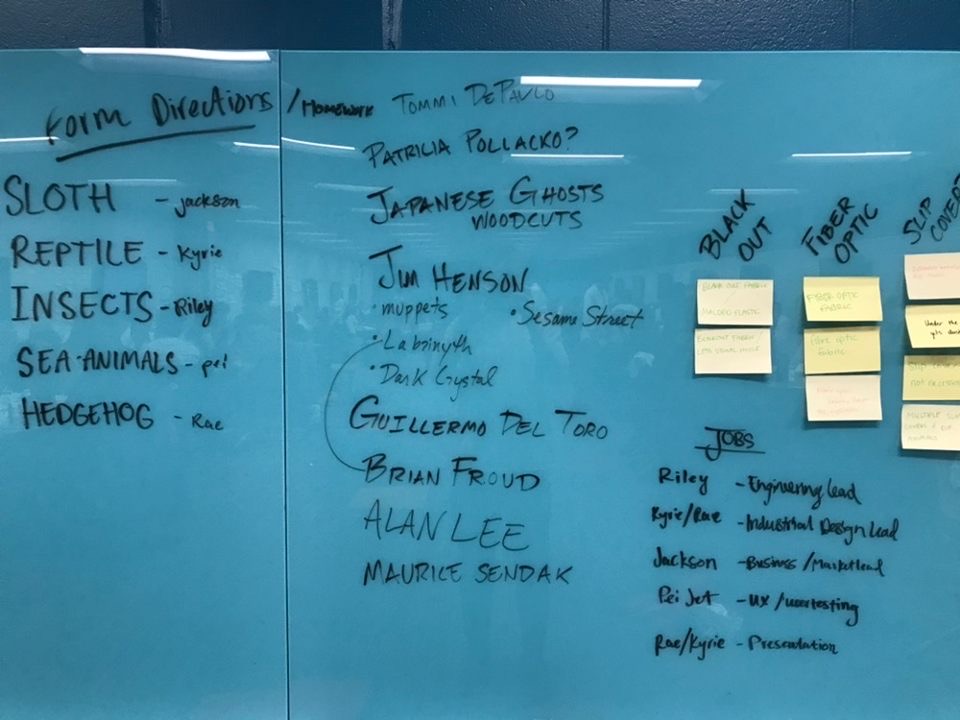 Form Directions / HOMEWORK
SLOTH - Jackson
REPTILE - Kyrie
INSECTS - Riley
SEA-ANIMALS - pei
HEDGEHOG - Rae
TOMMI DEPAULO
PATRILIA POLLACKO?
JAPANESE GHOSTS
WOODCUTS
JIM HENSON
• muppets
• Sesame Street
• Labrinyth
• Dark Crystal
GUILLERMO DEL TORO
BRIAN FROUD
ALAN LEE
MAURICE SENDAK
BLACK
OUT
BLACK OUT FABRIC
/
MOLDED PLASTIC
BLACKOUT FABRIC /
LESS VISUAL NOISE
FIBER
OPTIC
FIBER OPTIC
FABRIC
fibre optic
fabric
SLIP
COVER?
Under the
SLIP
not necessary
MULTIPLE SLIP
COVERS / 
ANIMALS
JOBS
Riley - Engineering lead
Kyrie/Rae - Industrial Design Lead
Jackson - Business / Market lead
Pei Jet - UX / user testing
Rae/Kyrie - Presentation